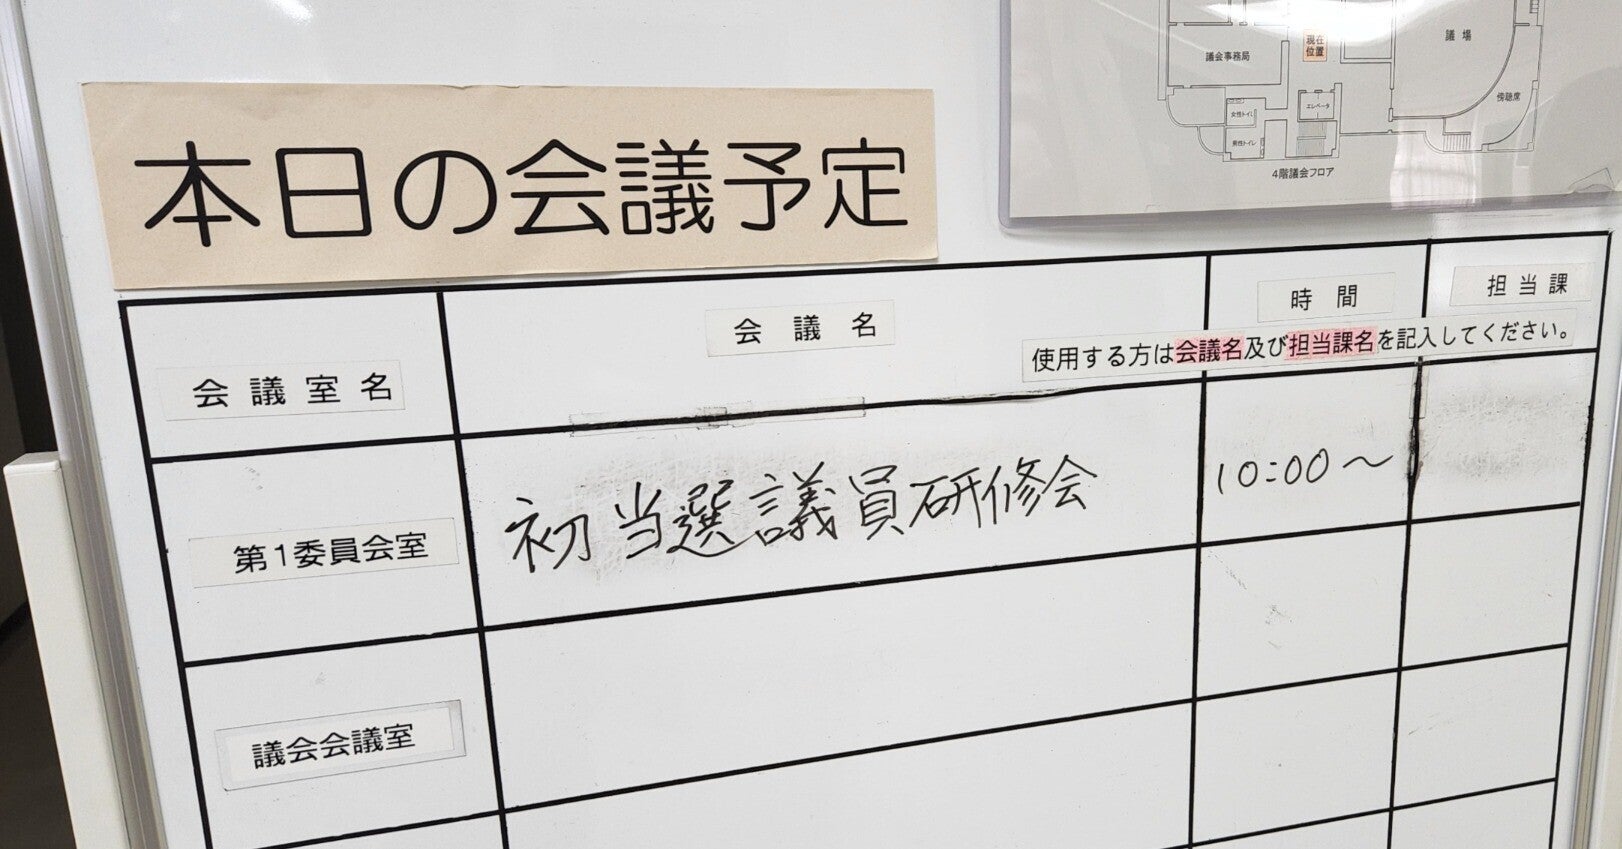 議会事務局
現在
位置
議場
傍聴席
女性トイレ
エレベータ
男性トイレ
4階議会フロア
本日の会議予定
会議室名
会議名
時間
担当課
使用する方は会議名及び担当課名を記入してください。
第1委員会室
初当選議員研修会
10:00～
議会会議室